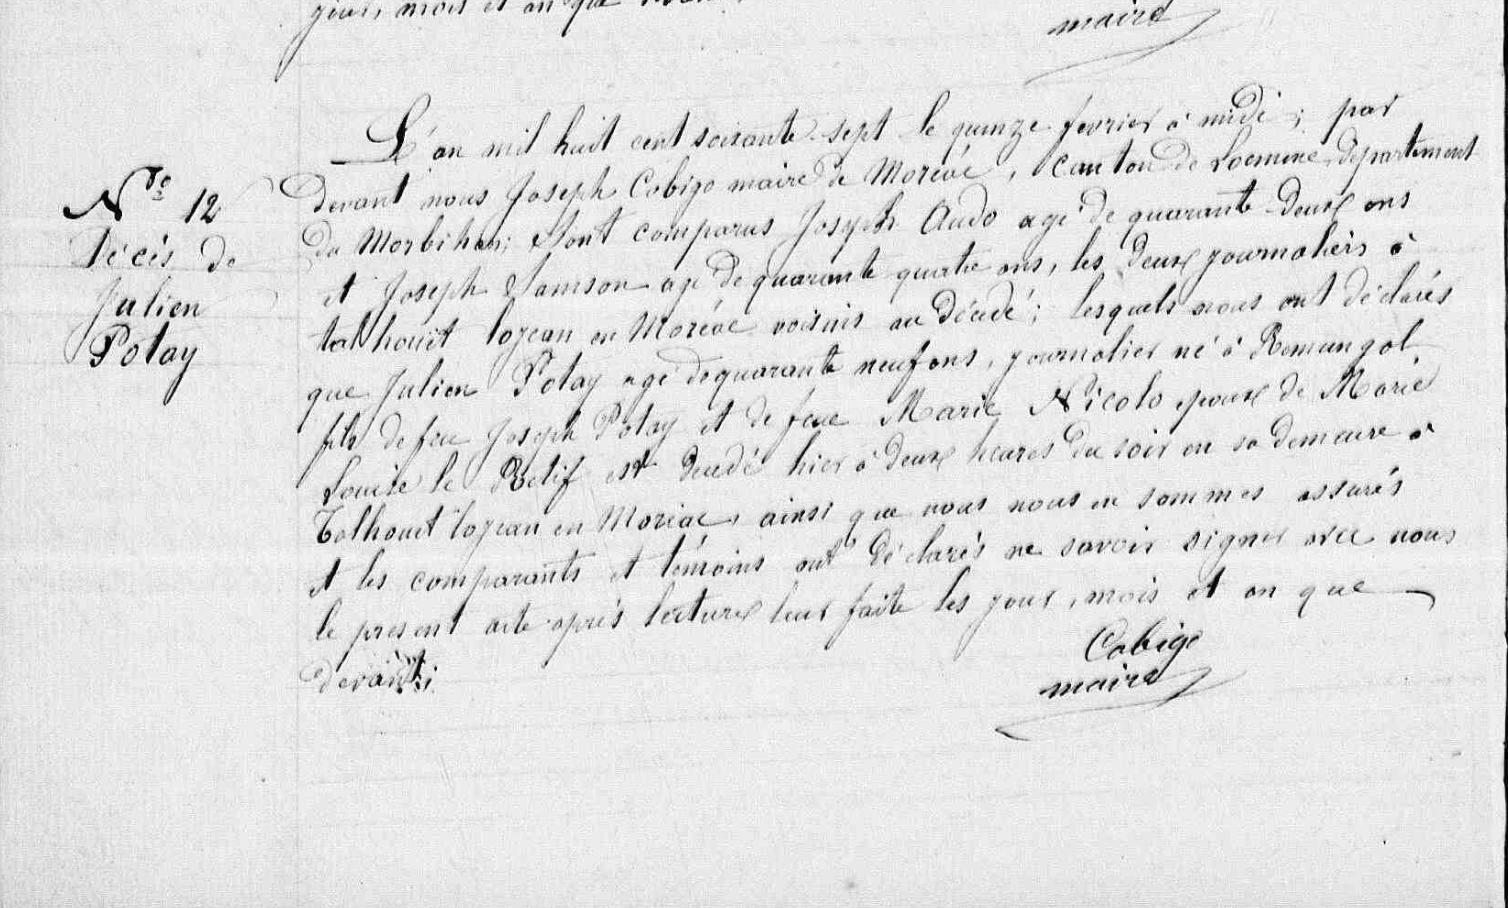 jour, mois et an que
maire
N.ro 12
Décès de
Julien
Potay
L'an mil huit cent soixante-sept le quinze fevrier à midi ; par
devant nous Joseph Cobigo maire de Moréac, canton de Locminé, département
du Morbihan ; Sont comparus Joseph Audo agé de quarante-deux ans
et Joseph Samson agé de quarante quatre ans, les deux journaliers à
talhouët lojean en Moréac voisins au décédé ; lesquels nous ont déclarés
que Julien Potay agé de quarante neuf ans, journalier né à Remungol,
fils de feu Joseph Potay et de feue Marie Nicolo epoux de Marie
Louise le Retif est decedé hier à deux heures du soir en sa demeure à
Talhouet lojean en Moréac, ainsi que nous nous en sommes assurés
et les comparants et témoins ont déclarés ne savoir signer avec nous
le present acte après lecture leur faite les jour, mois et an que
devant ;
Cobigo
maire